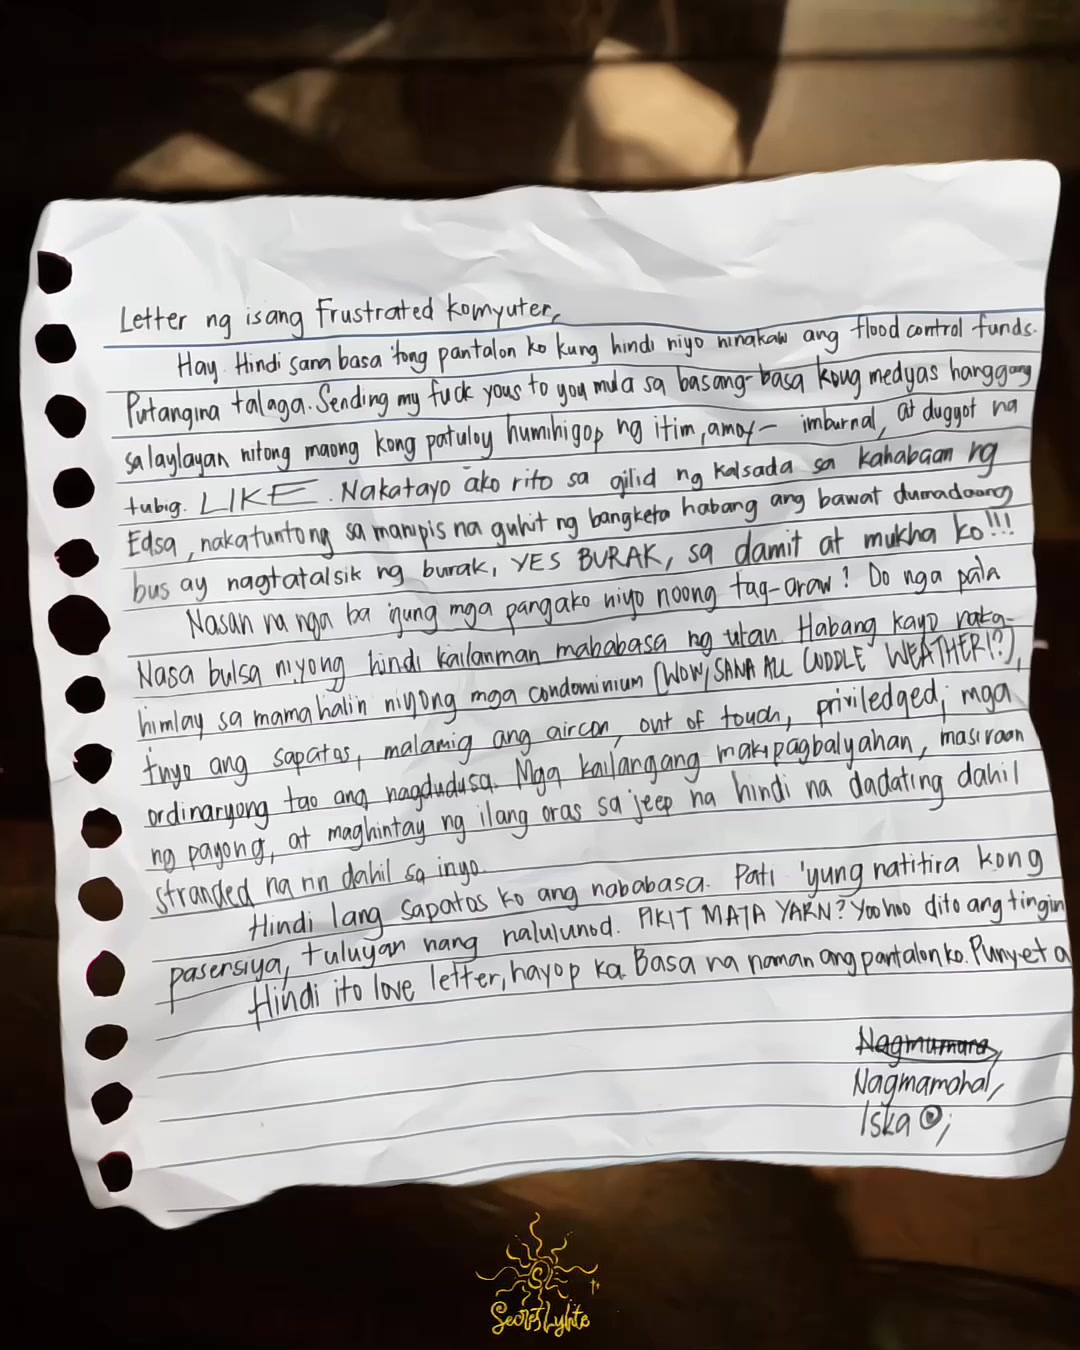 Letter ng isang Frustrated komyuter,
Hay. Hindi sana basa 'tong pantalon ko kung hindi niyo ninakaw ang flood control funds.
Putangina talaga. Sending my fuck yous to you mula sa basang-basa kong medyas hanggang
sa laylayan nitong maong kong patuloy humihigop ng itim, amoy- imburnal, at dugyot na
tubig. LIKE. Nakatayo ako rito sa gilid ng kalsada sa kahabaan ng
Edsa, nakatuntong sa manipis na guhit ng bangketa habang ang bawat dumadaang
bus ay nagtatalsik ng burak, YES BURAK, sa damit at mukha ko!!!
Nasan na nga ba iyung mga pangako niyo noong tag-araw? Do nga pala
Nasa bulsa niyong hindi kailanman mababasa ng ulan. Habang kayo naka-
himlay sa mamahalin niyong mga condominium (WOW, SANA ALL CUDDLE WEATHER!?),
tuyo ang sapatos, malamig ang aircon, out of touch, priviledged; mga
ordinaryong tao ang nagdudusa. Mga kailangang makipagbalyahan, masiraan
ng payong, at maghintay ng ilang oras sa jeep na hindi na dadating dahil
stranded na rin dahil sa inyo.
Hindi lang sapatos ko ang nababasa. Pati 'yung natitira kong
pasensiya, tuluyan nang nalulunod. PIKIT MATA YARN? Yoohoo dito ang tingin
Hindi ito love letter, hayop ka. Basa na naman ang pantalon ko. Punyeta
Nagmamahal,
Iska
SecretLyhte